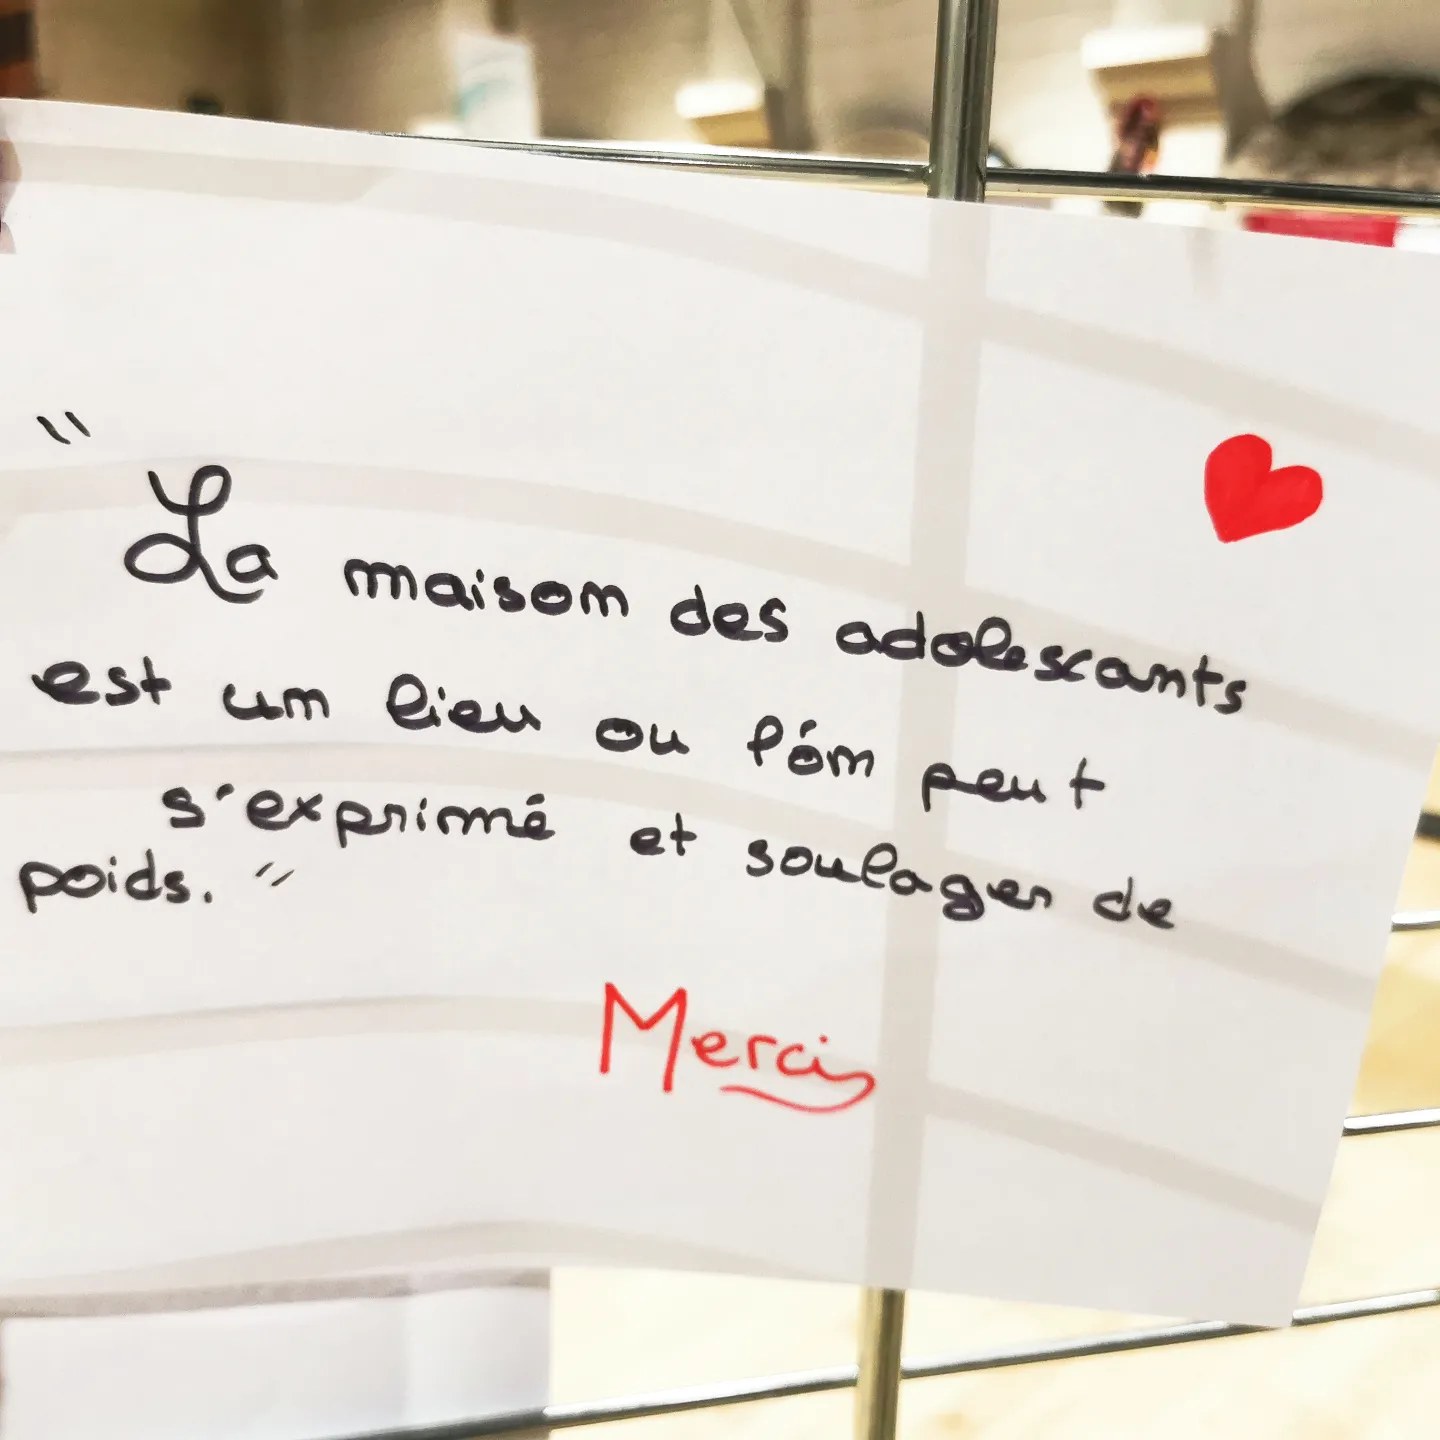 "La maison des adolescants
est un lieu ou l'ón peut
s'exprimé et soulager de
poids."
Merci